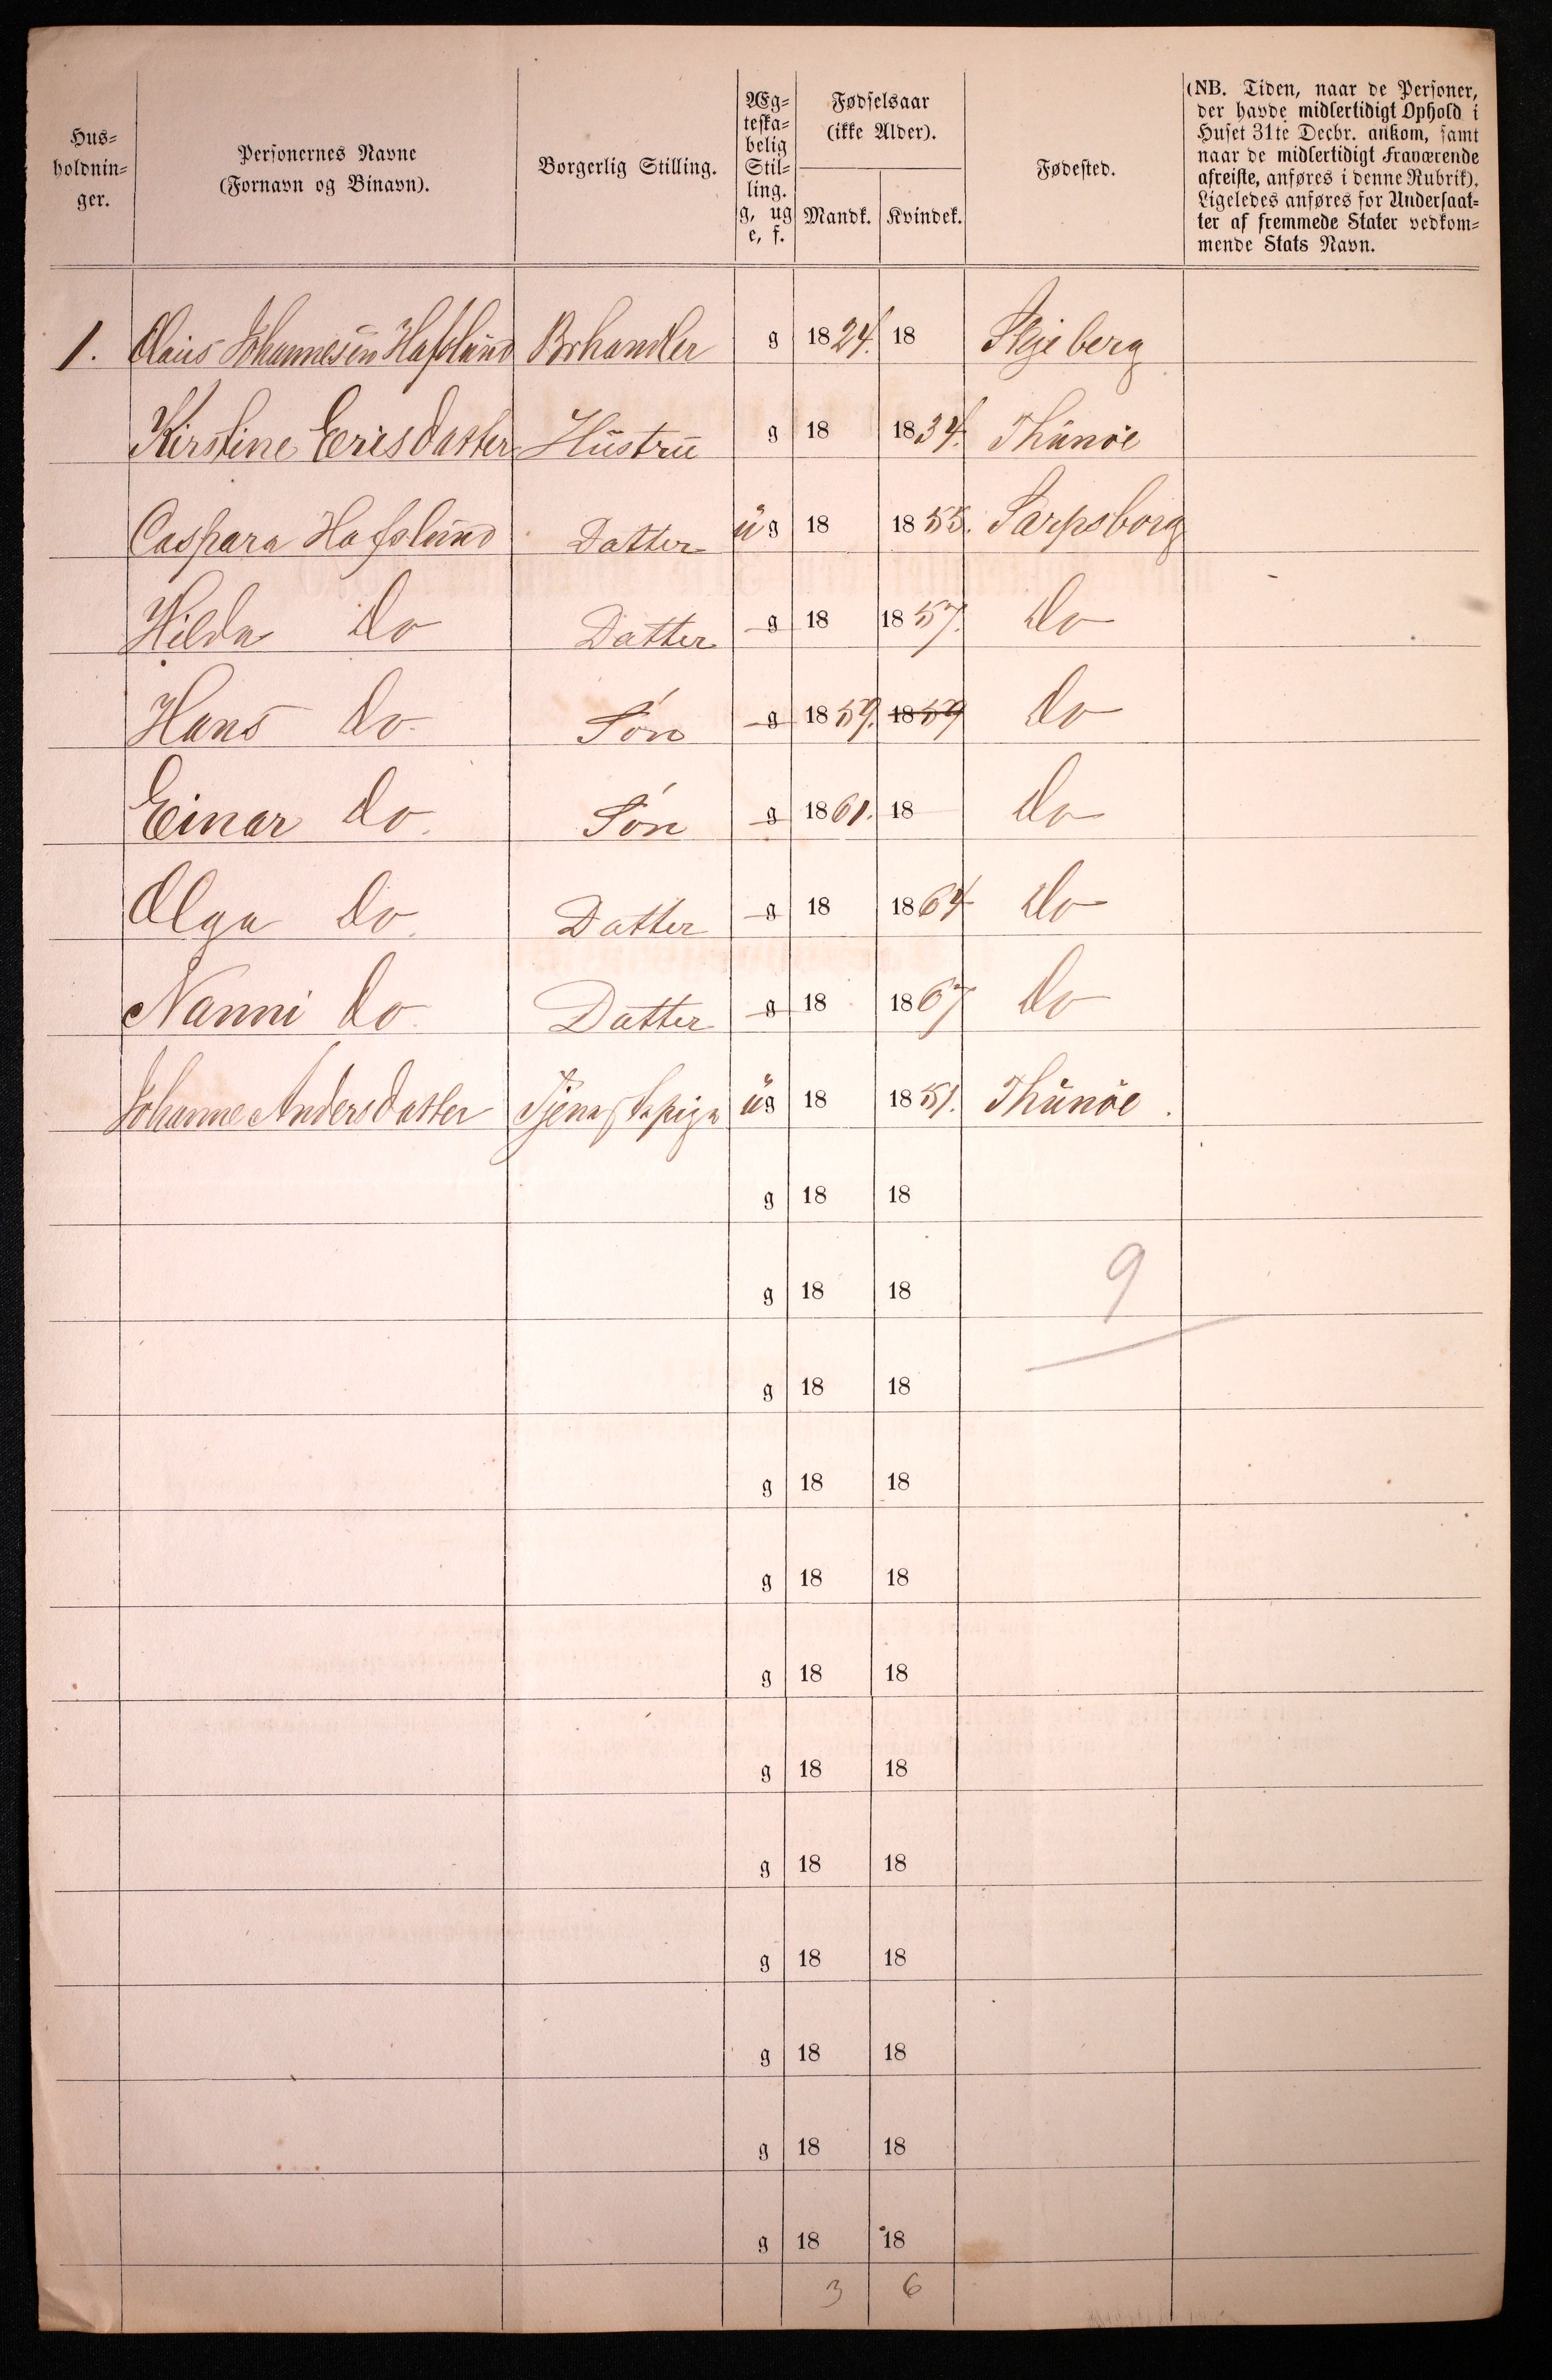 Hus-
holdnin-
ger.
Personernes Navne
(Fornavn og Binavn).
Borgerlig Stilling.
Æg-
teska-
belig
Stil-
ling.
g, ug
e, f.
Fødselsaar
(ikke Alder).
Mandk. Kvindek.
Fødested.
(NB. Tiden, naar de Personer,
der havde midlertidigt Ophold i
Huset 31te Decbr. ankom, samt
naar de midlertidigt Fraværende
afreiste, anføres i denne Rubrik).
Ligeledes anføres for Undersaat-
ter af fremmede Stater vedkom-
mende Stats Navn.
1. Olaüs Johannesen Hafslünd Brhandler g 1824. 18 Skjeberg
Kirstine Erisdatter Hüstrü g 18 1834. Thünöe
Caspara Hafslünd Datter üg 18 1855. Sarpsborg
Hilda do Datter g 18 1857. do
Hans do. Søn g 1859. 1859 do
Einar do. Søn g 1861. 18 do
Olga do. Datter g 18 1864 do
Nanni do. Datter g 18 1867 do
Johanne Andersdatter üg 18 1851. Thünöe.
g 18 18
g 18 18 9
g 18 18
g 18 18
g 18 18
g 18 18
g 18 18
g 18 18
g 18 18
g 18 18
g 18 18
g 18 18
3 6